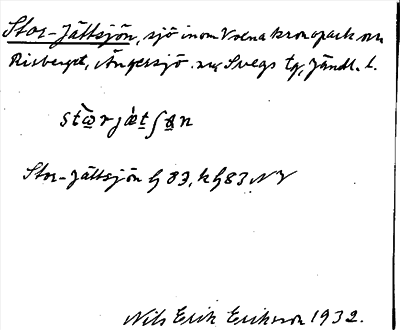 Stor-Jättsjön, sjö inom Voxna kronopark nv
Risberget, Ängersjö. ng Svegs tg, Jämtl. l.
stɷ̀rjæ̀tʃɷn
Stor-Jättsjön G 83, k G83 NV
Nils Erik Eriksson 1932.